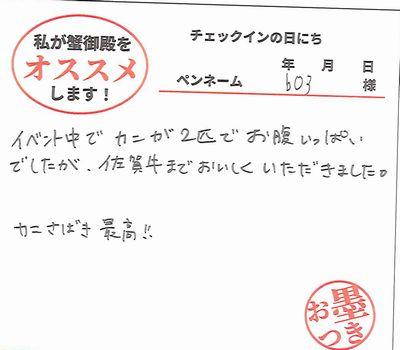 私が蟹御殿を
オススメ
します！
チェックインの日にち
年 月 日
ペンネーム 603 様
イベント中で カニが 2匹で お腹いっぱい
でしたが、佐賀牛までおいしく いただきました。
カニさばき 最高!!
お墨
つき